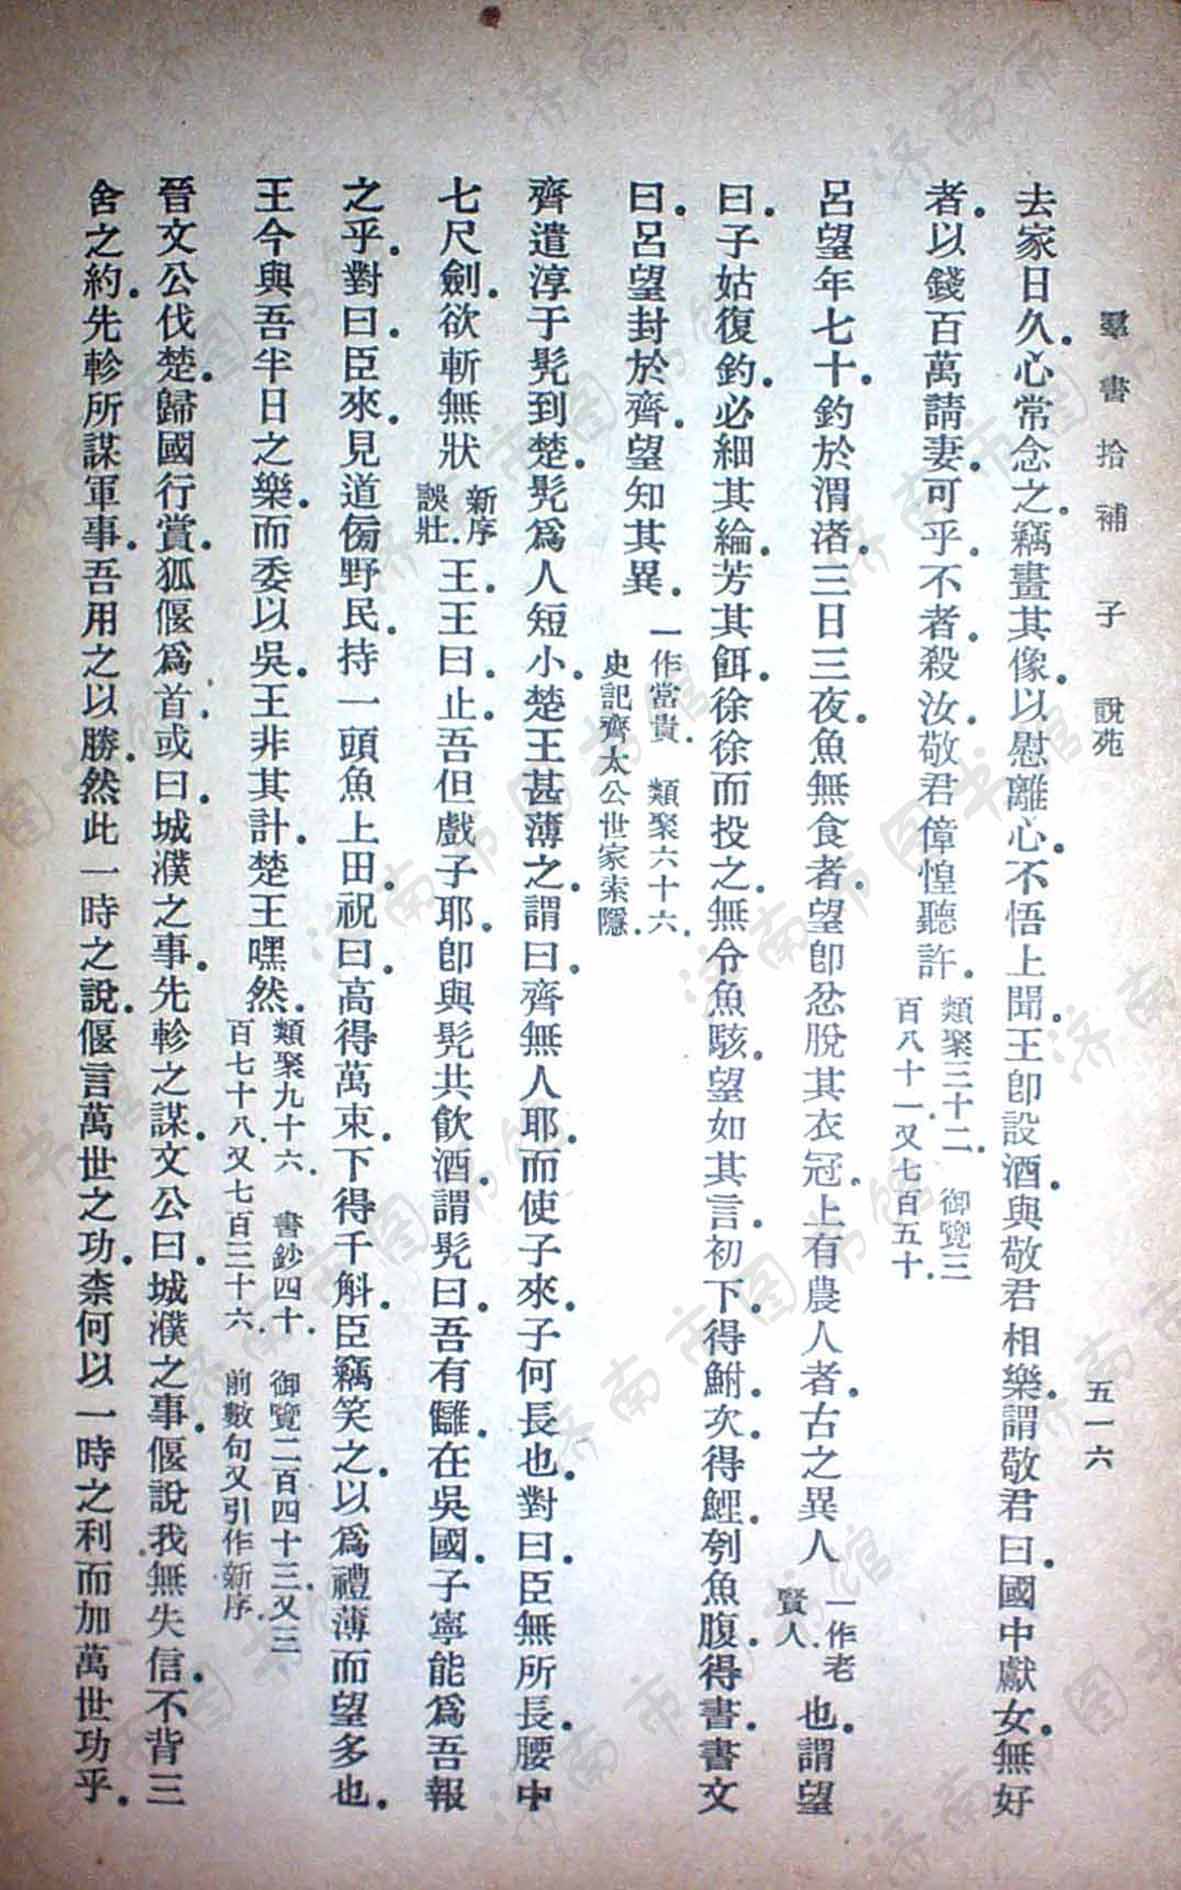 羣書拾補 子 說苑 五一六
去家日久。心常念之。竊畫其像。以慰離心。不悟上聞。王卽設酒。與敬君相樂。謂敬君曰。國中獻女。無好
者。以錢百萬請妻。可乎。不者。殺汝。敬君偉惶聽許。類聚三十二。 御覽三百八十一。又七百五十。
呂望年七十。釣於渭渚。三日三夜。魚無食者。望卽忿脫其衣冠。上有農人者。古之異人一作老賢人。也。謂望
曰。子姑復釣。必細其綸。芳其餌。徐徐而投之。無令魚駭。望如其言。初下。得鮒。次得鯉。刳魚腹。得書。書文
曰。呂望封於齊。望知其異。一作當貴。 類聚六十六。史記齊太公世家索隱。
齊遣淳于髠到楚。髠爲人短小。楚王甚薄之。謂曰。齊無人耶。而使子來。子何長也。對曰。臣無所長。腰中
七尺劍。欲斬無狀新序誤壯。王。王曰。止。吾但戲子耶。卽與髠共飮酒。謂髠曰。吾有讎。在吳國。子寧能爲吾報
之乎。對曰。臣來。見道傍野民。持一頭魚上田。祝曰。高得萬束。下得千斛。臣竊笑之。以爲禮薄而望多也。
王今與吾半日之樂。而委以吳。王非其計。楚王嘿然。類聚九十六。 書鈔四十。 御覽二百四十三。又三百七十八。又七百三十六。 前數句又引作新序。
晉文公伐楚。歸國行賞。狐偃爲首。或曰。城濮之事。先軫之謀。文公曰。城濮之事。偃說我無失信。不背三
舍之約。先軫所謀軍事。吾用之以勝。然此一時之說。偃言萬世之功。柰何以一時之利而加萬世功乎。